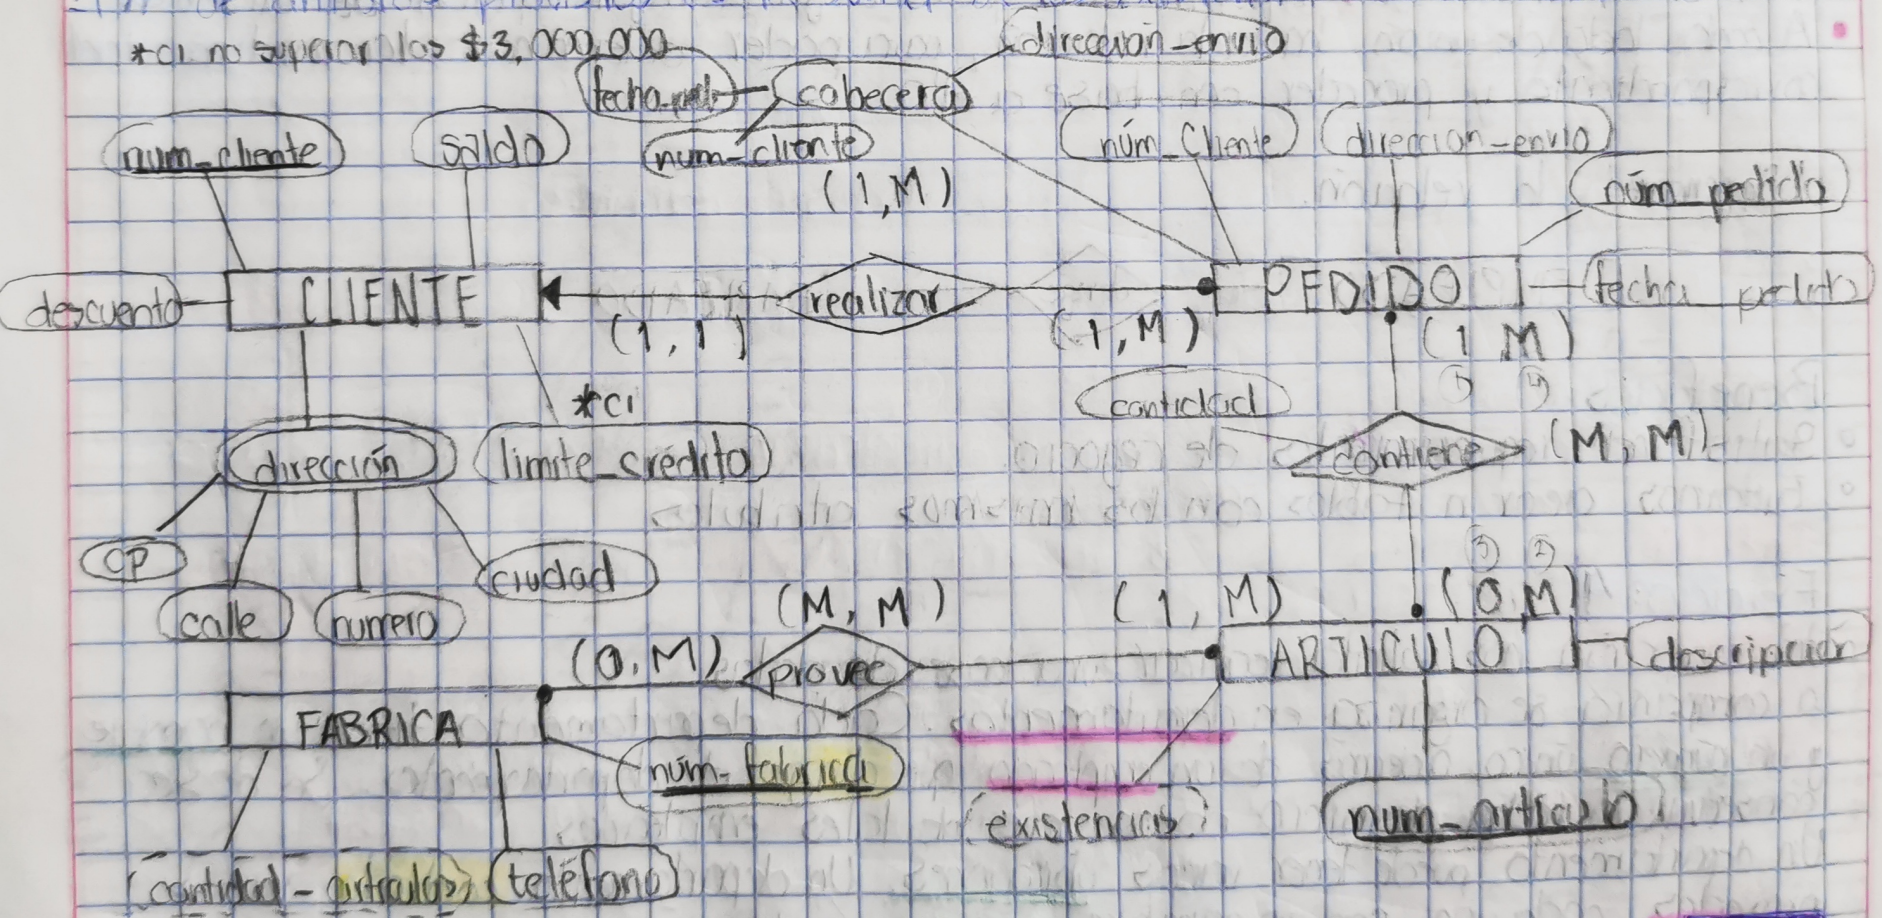 *ci no superar los $3,000,000
dirección_envio
cabecera
num_cliente
saldo
num_cliente
núm_Cliente
direccion_envio
(1,M)
núm_pedido
descuento
CLIENTE
realizar
PEDIDO
fecha
(1,1)
(1,M)
(1 M)
*ci
cantidad
dirección
limite_crédito
contiene
(M,M)
cp
ciudad
calle
numero
(M,M)
(1,M)
(0,M)
(0,M)
provee
ARTICULO
descripción
FABRICA
núm_fabrica
existencias
num_articulo
cantidad-articulos
teléfono